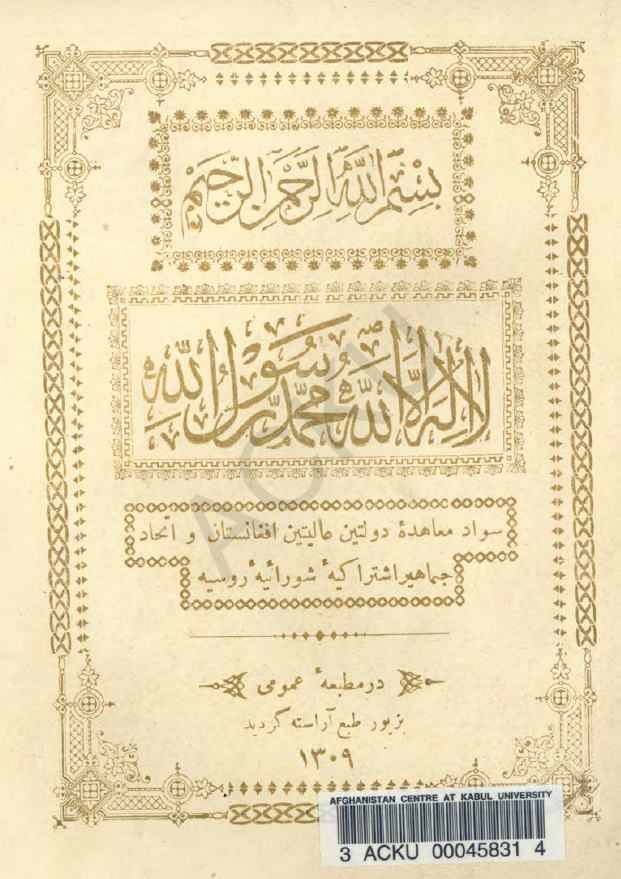 بِسْمِ اللهِ الرَّحْمنِ الرَّحِيمِ
لا اِلهَ اِلَّا اللهُ مُحَمَّدٌ رَسُوْلُ اللهِ
سواد معاهدهٔ دولتین عالیتین افغانستان و اتحاد
جماهیر اشتراکیهٔ شورائیهٔ روسیه
در مطبعهٔ عمومی
بزیور طبع آراسته گردید
۱۳۰۹
ACKU
AFGHANISTAN CENTRE AT KABUL UNIVERSITY
3 ACKU 00045831 4